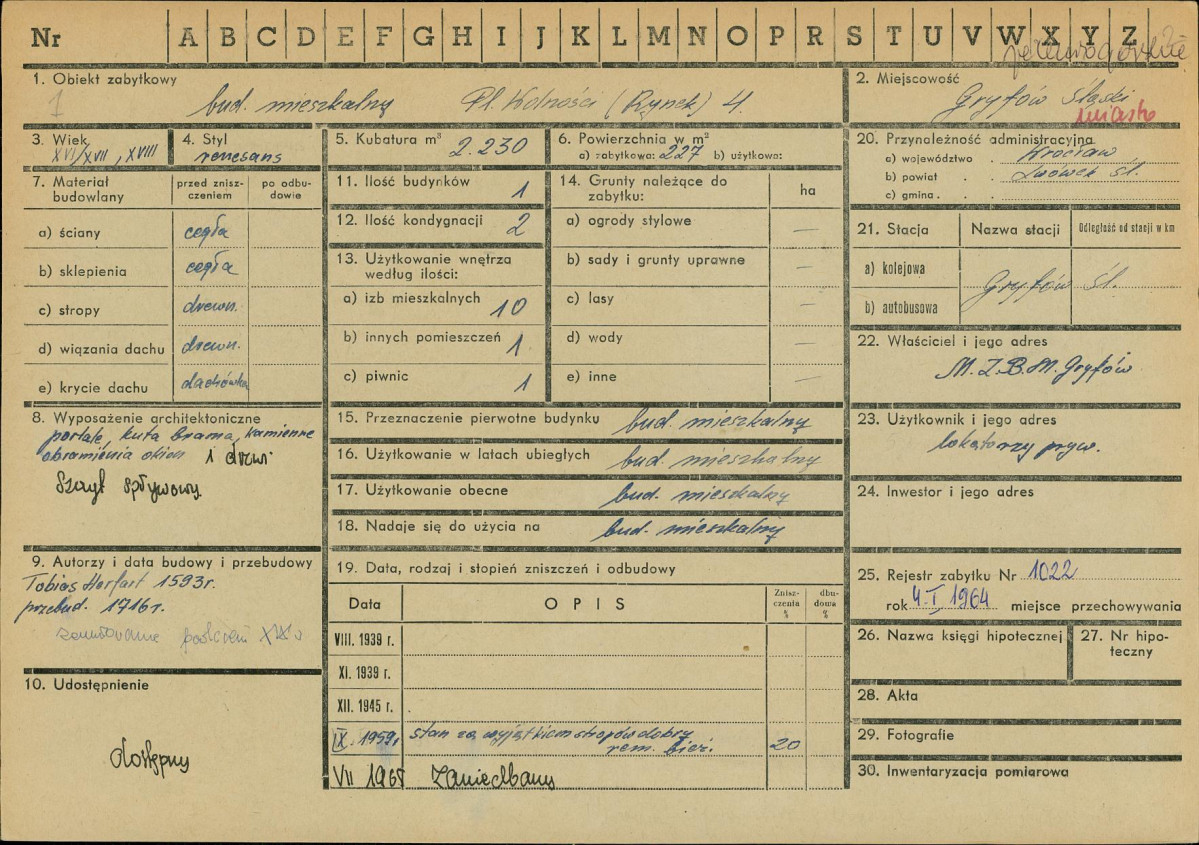 Nr A B C D E F G H I J K L M N O P R S T U V W X Y Z
1. Obiekt zabytkowy
1
bud. mieszkalny Pl. Wolności (Rynek) 4
2. Miejscowość
Gryfów Śląski
miasto
3. Wiek
XVI/XVII, XVIII
4. Styl
renesans
5. Kubatura m³ 2.230
6. Powierzchnia w m²
a) zabytkowa: 227 b) użytkowa:
7. Materiał budowlany
przed zniszczeniem
po odbudowie
a) ściany cegła
b) sklepienia cegła
c) stropy drewn.
d) wiązania dachu drewn.
e) krycie dachu dachówka
8. Wyposażenie architektoniczne
portale, kuta brama, kamienne
obramienia okien i drzwi
Szczyt spływowy
9. Autorzy i data budowy i przebudowy
Tobias Herfart 1593r.
przebud. 1716r.
zamurowanie podcieni XIX w
10. Udostępnienie
dostępny
11. Ilość budynków 1
12. Ilość kondygnacji 2
13. Użytkowanie wnętrza
według ilości:
a) izb mieszkalnych 10
b) innych pomieszczeń 1
c) piwnic 1
14. Grunty należące do
zabytku:
ha
a) ogrody stylowe —
b) sady i grunty uprawne —
c) lasy —
d) wody —
e) inne —
15. Przeznaczenie pierwotne budynku bud. mieszkalny
16. Użytkowanie w latach ubiegłych bud. mieszkalny
17. Użytkowanie obecne bud. mieszkalny
18. Nadaje się do użycia na bud. mieszkalny
19. Data, rodzaj i stopień zniszczeń i odbudowy
Data
OPIS
Zniszczenia %
dbudowa %
VIII. 1939 r.
XI. 1939 r.
XII. 1945 r.
IX. 1959r stan za wyjątkiem stropów dobry
rem. bież. 20
VII 1965 Zaniedbany
20. Przynależność administracyjna
a) województwo . Wrocław
b) powiat . . Lwówek Śl.
c) gmina . . .
21. Stacja
Nazwa stacji
Odległość od stacji w km
a) kolejowa
Gryfów Śl.
b) autobusowa
22. Właściciel i jego adres
M.Z.B.M. Gryfów
23. Użytkownik i jego adres
lokatorzy pryw.
24. Inwestor i jego adres
25. Rejestr zabytku Nr 1022
rok 4.I 1964 miejsce przechowywania
26. Nazwa księgi hipotecznej
27. Nr hipoteczny
28. Akta
29. Fotografie
30. Inwentaryzacja pomiarowa